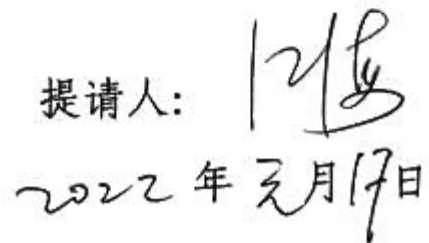 提请人:
2022年元月17日